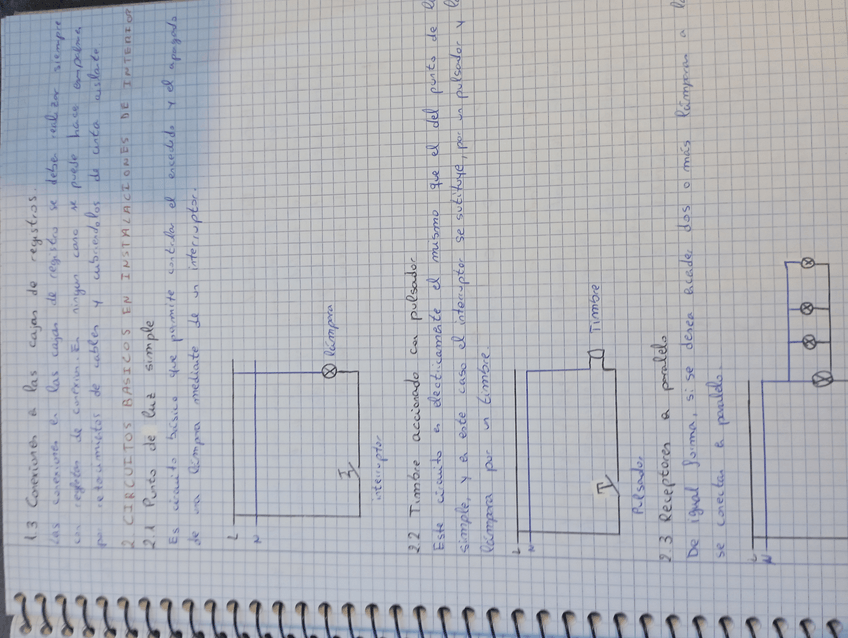 1.3 Conexiones a las cajas de registros.
Las conexiones en las cajas de registro se debe realizar siempre
con regletas de conexion. En ningun caso se puede hace empalmes
por retorcimientos de cables y cubriendolos de cinta aislate
2 CIRCUITOS BASICOS EN INSTALACIONES DE INTERIOR
2.1 Punto de luz simple
Es circuito básico que permite controlar el encedido y el apagado
de una lámpara mediate de un interruptor.
L
N
lámpara
interruptor
2.2 Timbre accionado con pulsador
Este circuito es electricamente el mismo que el del punto de
simple, y a este caso el interruptor se sutituye, por un pulsador y
lámpara por un timbre.
L
N
Timbre
Pulsador
2.3 Receptores a paralelo
De igual forma, si se desea dos o más lámparas a
se conectan a paralelo.
L
N